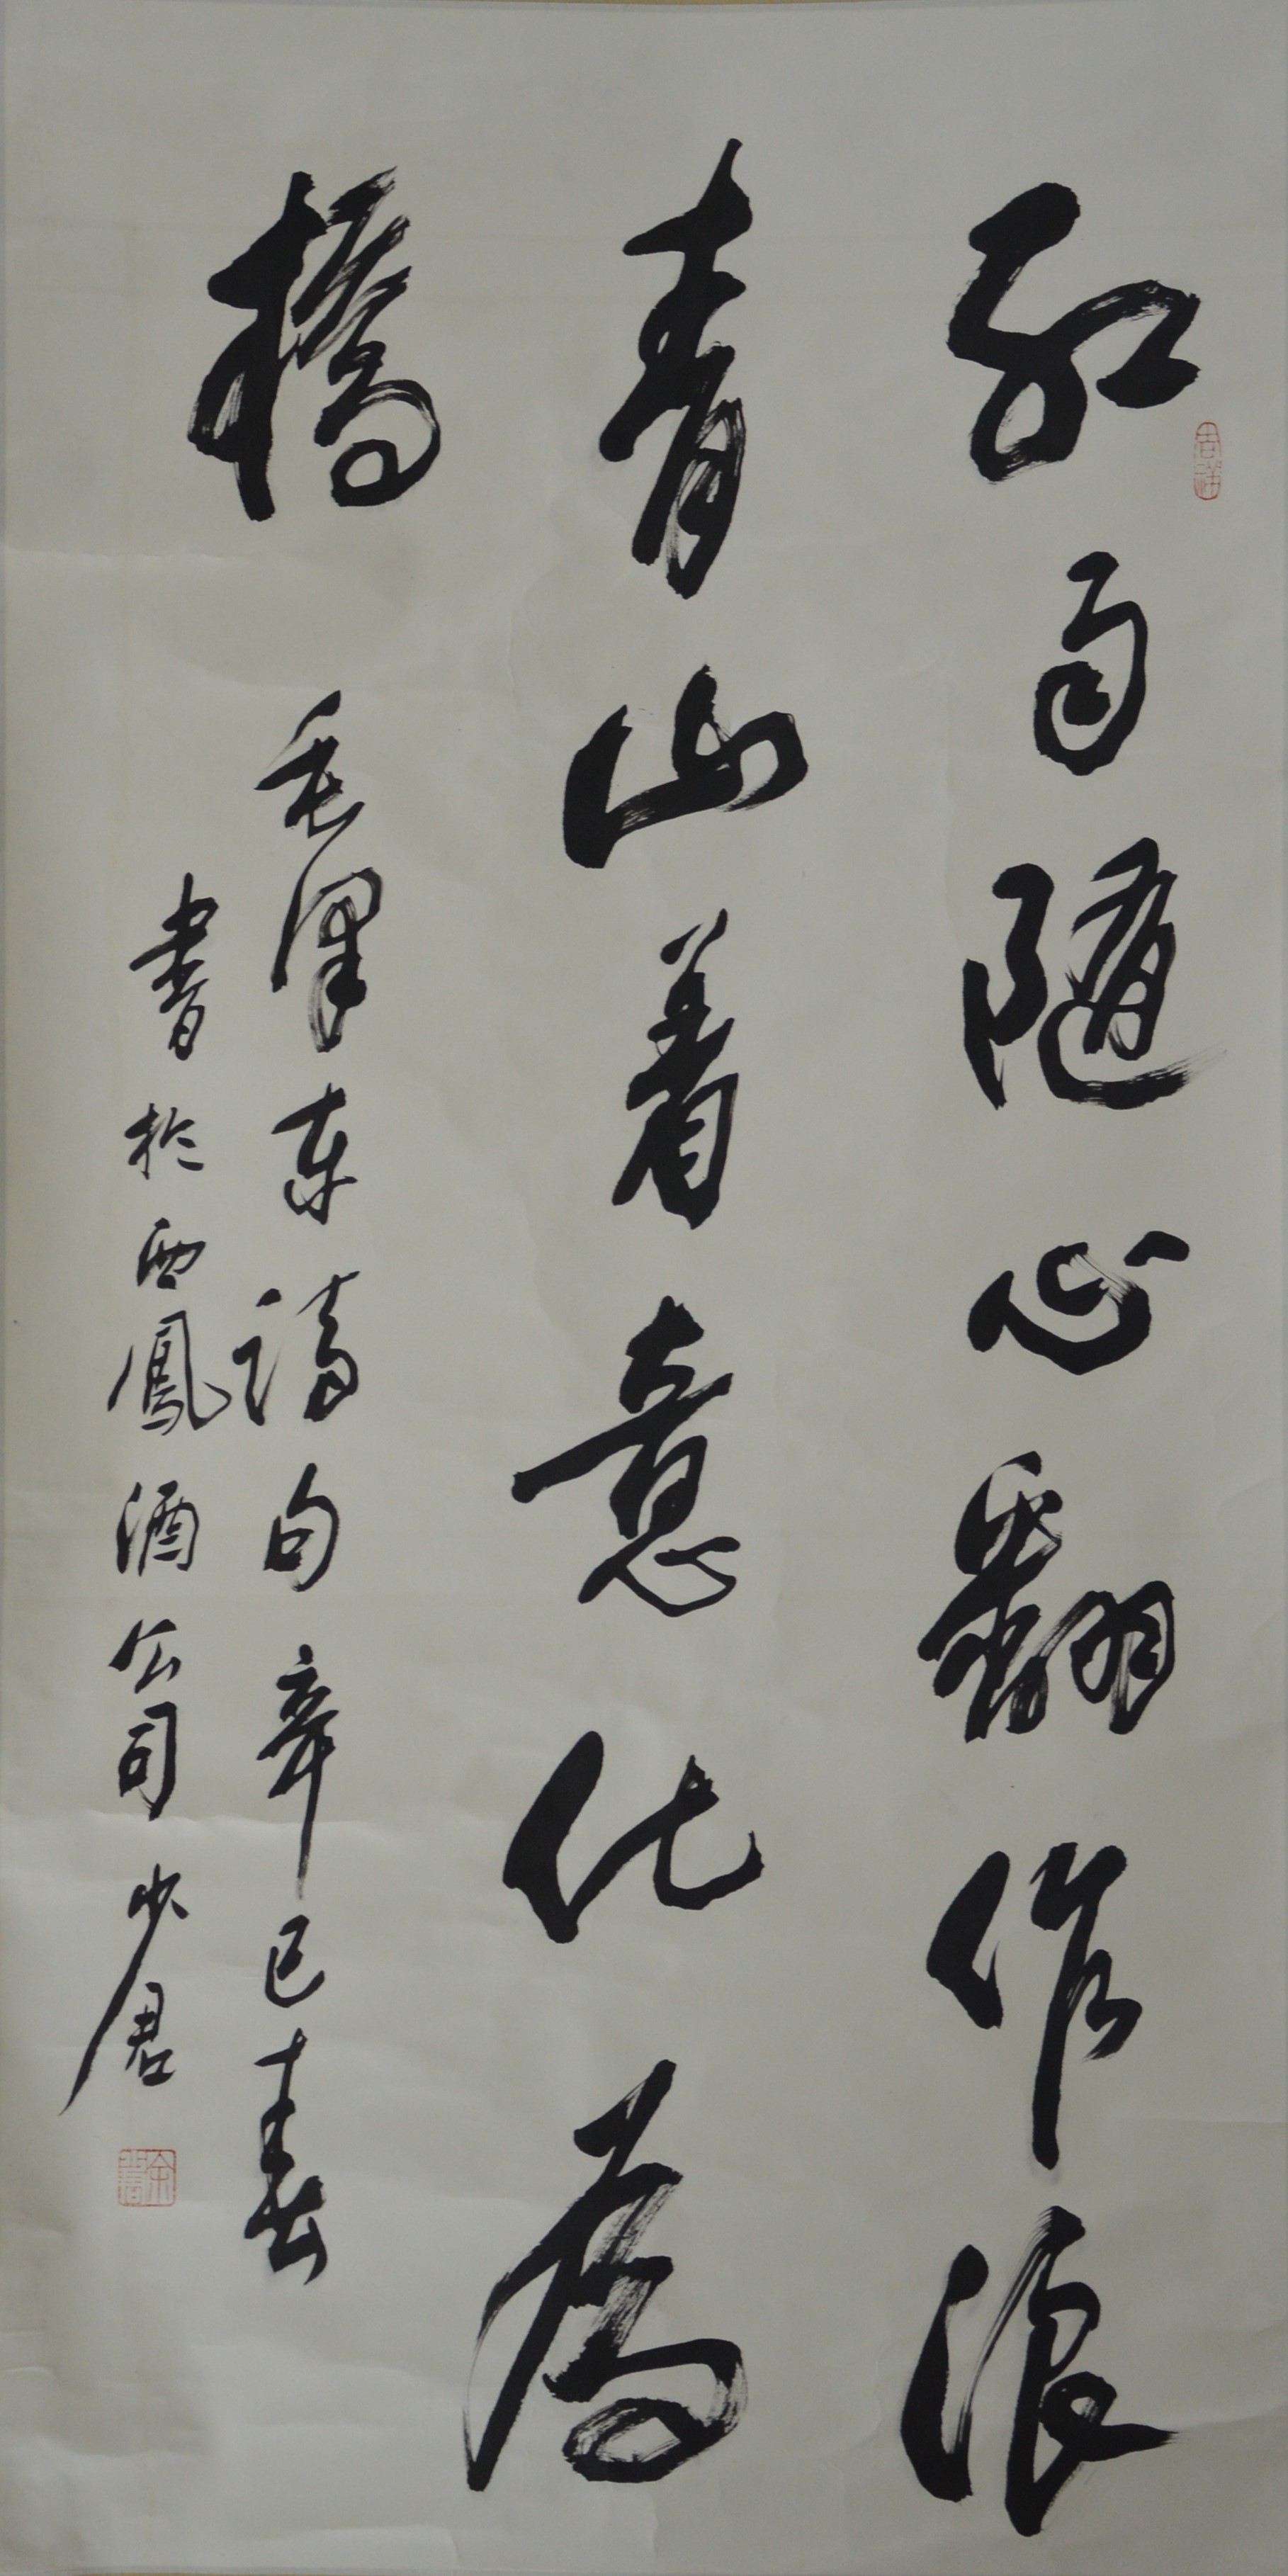 红雨随心翻作浪
青山着意化為
橋
毛澤东诗句 辛巳春
書於西鳳酒公司 少君
吉祥